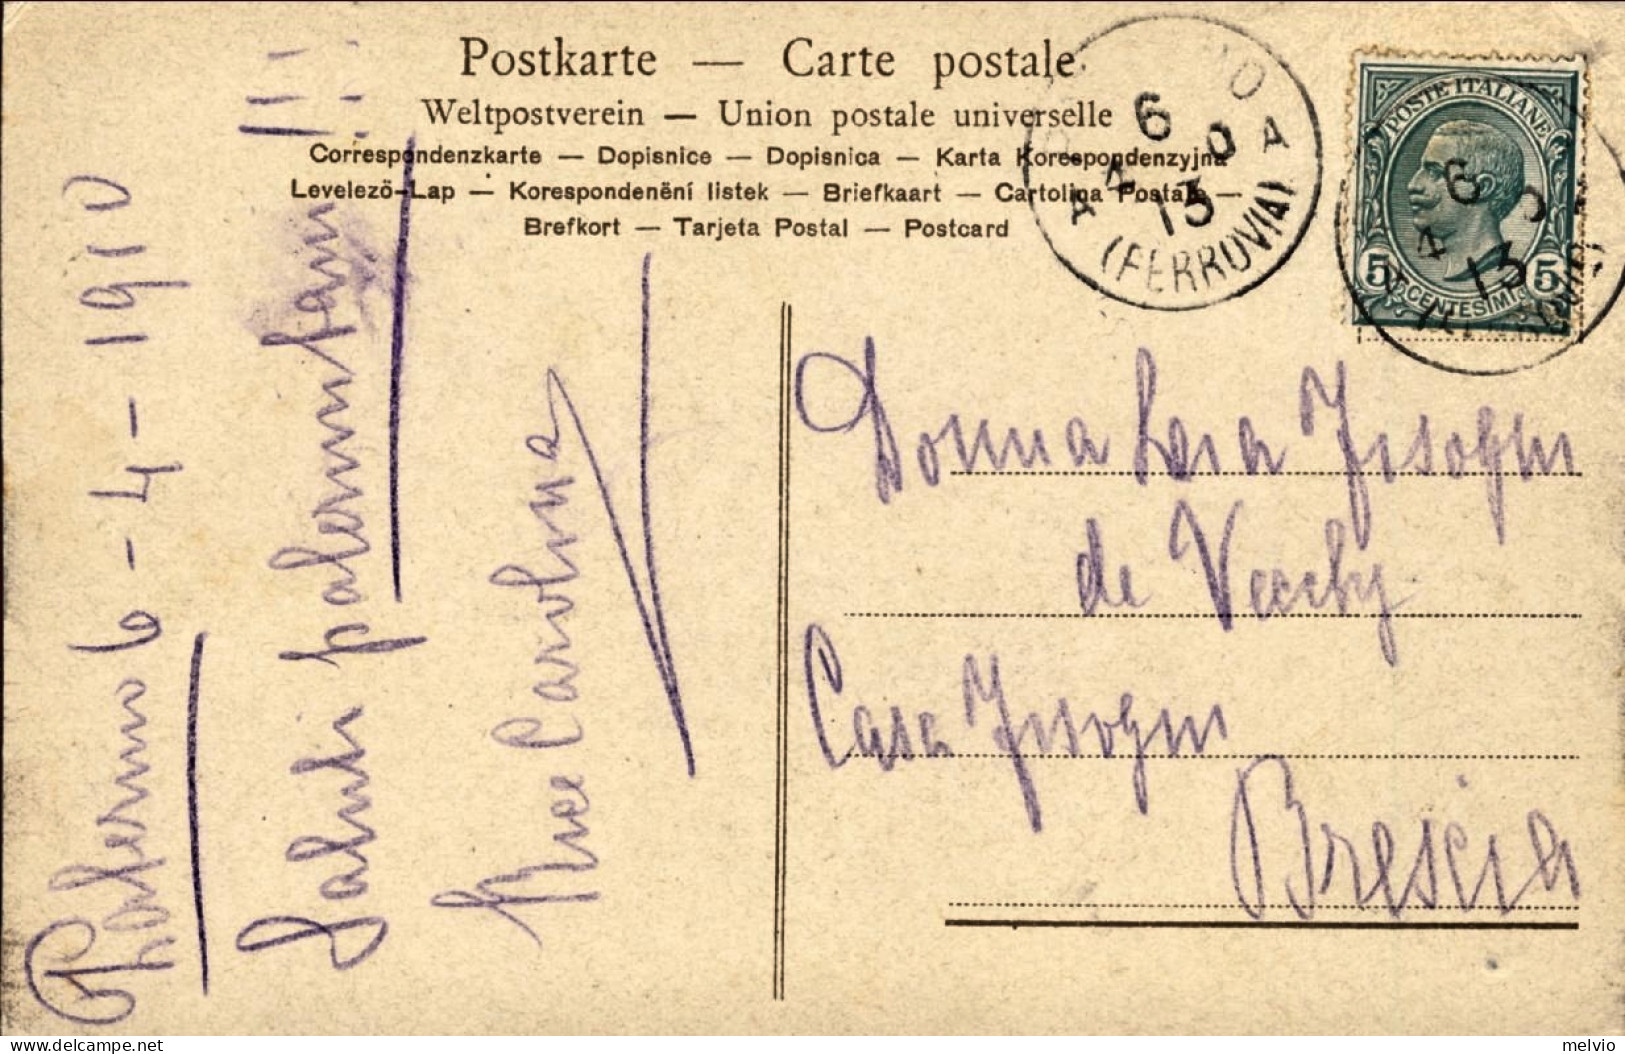 Postkarte — Carte postale
Weltpostverein — Union postale universelle
Correspondenzkarte — Dopisnice — Dopisnica — Karta Korespondenzyjna
Levelező-Lap — Korespondenění listek — Briefkaart — Cartolina Postale —
Brefkort — Tarjeta Postal — Postcard
6
4 13
(FERROVIA)
POSTE ITALIANE
5 CENTESIMI 5
6
4 13
Palermo 6-4-1910
Saluti palermitani!!!
Carolina
Donna
de
Casa
Brescia
melvio